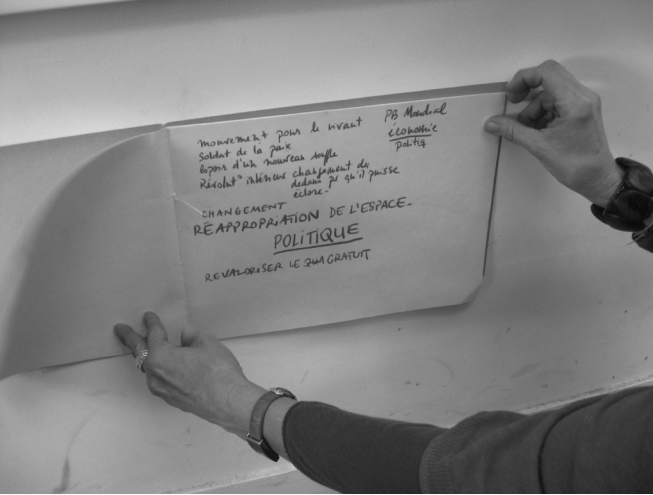 mouvement pour le vivant
Soldat de la paix
espoir d'un nouveau souffle
Révolut° intérieur changement du
dedans pr qu'il puisse
éclore.
PB Mondial
économie
politiq
CHANGEMENT
RÉAPPROPRIATION DE L'ESPACE-
POLITIQUE
REVALORISER LE GRATUIT